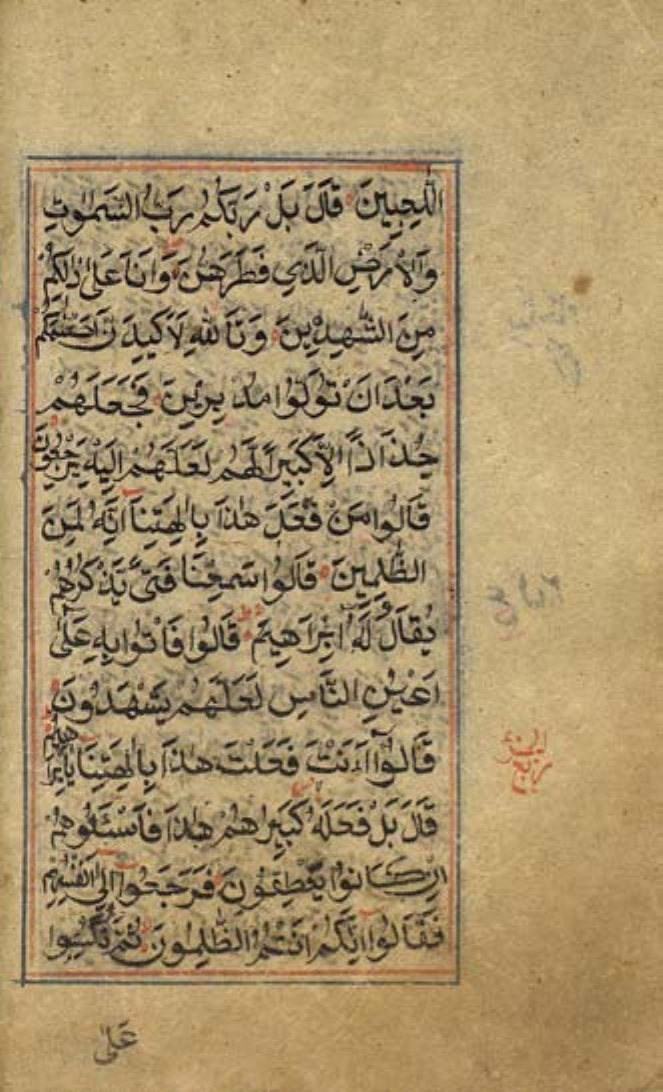 اللّٰعِبِينَ قَالَ بَلْ رَبُّكُمْ رَبُّ السَّمٰوٰتِ
وَالْاَرْضِ الَّذِي فَطَرَهُنَّ وَاَنَا عَلٰى ذٰلِكُمْ
مِنَ الشّٰهِدِينَ وَتَاللّٰهِ لَاَكِيدَنَّ اَصْنَامَكُمْ
بَعْدَ اَنْ تُوَلُّوا مُدْبِرِينَ فَجَعَلَهُمْ
جُذَاذًا اِلَّا كَبِيرًا لَهُمْ لَعَلَّهُمْ اِلَيْهِ يَرْجِعُونَ
قَالُوا مَنْ فَعَلَ هٰذَا بِاٰلِهَتِنَا اِنَّهُ لَمِنَ
الظّٰلِمِينَ قَالُوا سَمِعْنَا فَتًى يَذْكُرُهُمْ
يُقَالُ لَهُ اِبْرَاهِيمُ قَالُوا فَاْتُوا بِهِ عَلٰى
اَعْيُنِ النَّاسِ لَعَلَّهُمْ يَشْهَدُونَ
قَالُوا ءَاَنْتَ فَعَلْتَ هٰذَا بِاٰلِهَتِنَا يَا اِبْرَاهِيمُ
قَالَ بَلْ فَعَلَهُ كَبِيرُهُمْ هٰذَا فَاسْـَٔلُوهُمْ
اِنْ كَانُوا يَنْطِقُونَ فَرَجَعُوا اِلٰى اَنْفُسِهِمْ
فَقَالُوا اِنَّكُمْ اَنْتُمُ الظّٰلِمُونَ ثُمَّ نُكِسُوا
عَلٰى